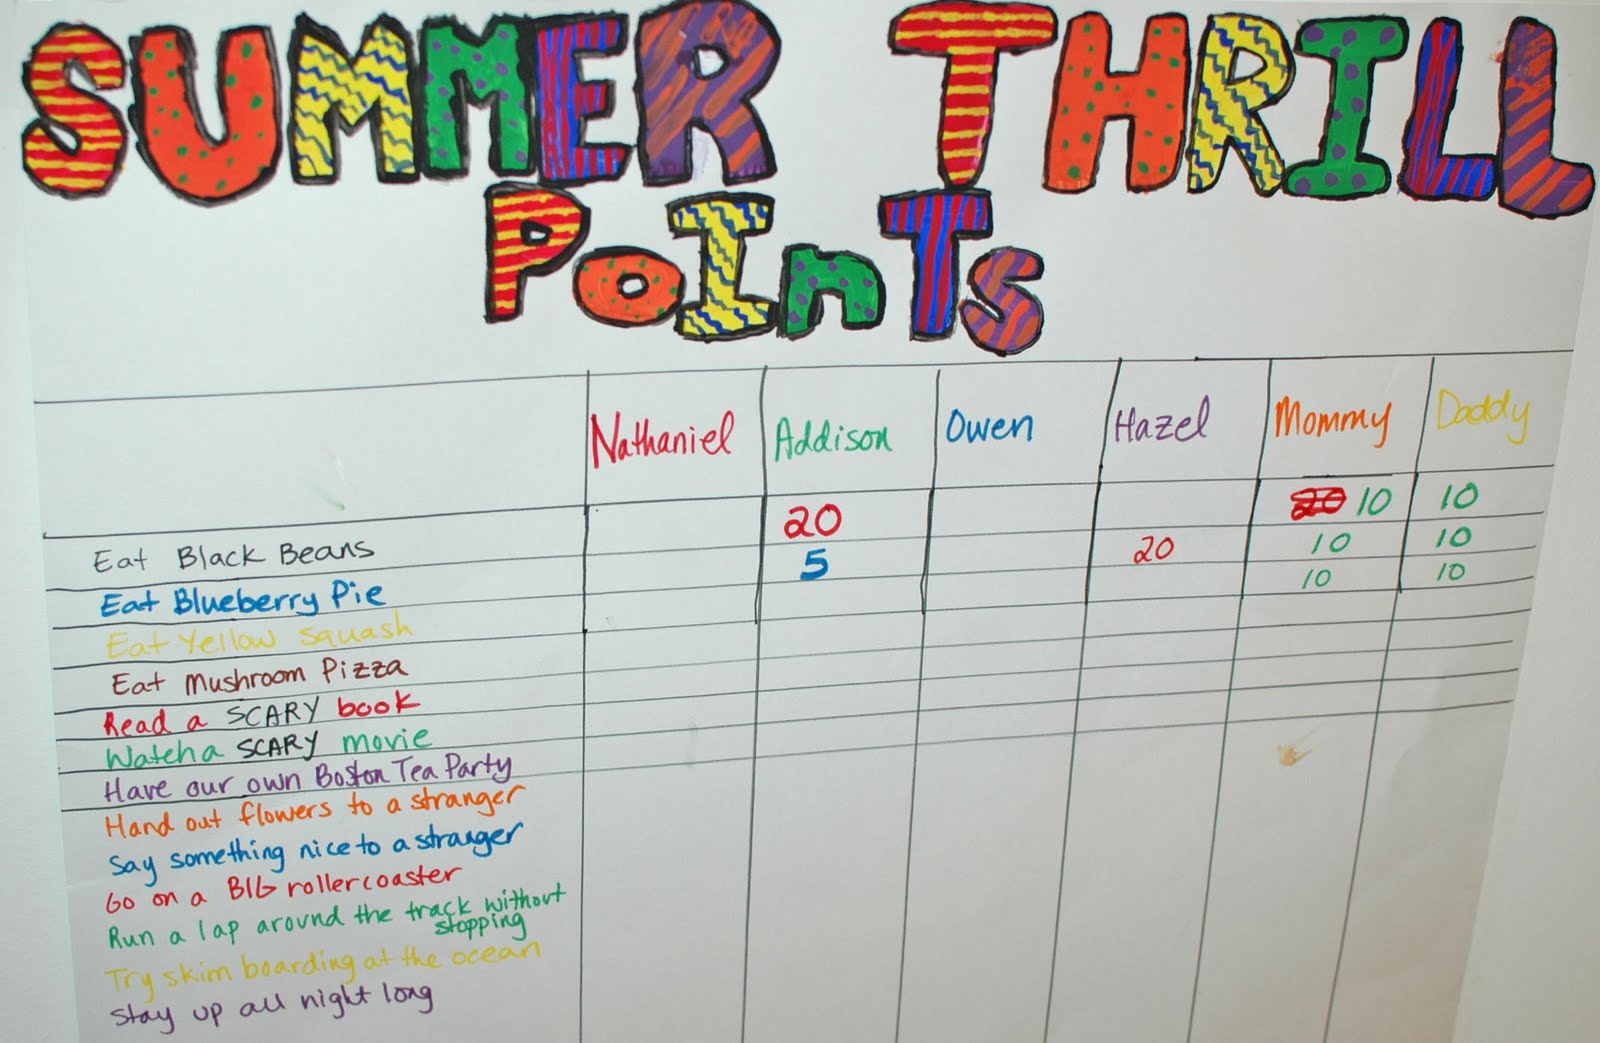 SUMMER THRILL
PoInTs
Nathaniel Addison Owen Hazel Mommy Daddy
Eat Black Beans 20 20 10 10
Eat Blueberry Pie 5 20 10 10
Eat Yellow Squash 10 10
Eat Mushroom Pizza
Read a SCARY book
Watch a SCARY movie
Have our own Boston Tea Party
Hand out flowers to a stranger
Say something nice to a stranger
Go on a BIG rollercoaster
Run a lap around the track without
stopping
Try skim boarding at the ocean
Stay up all night long